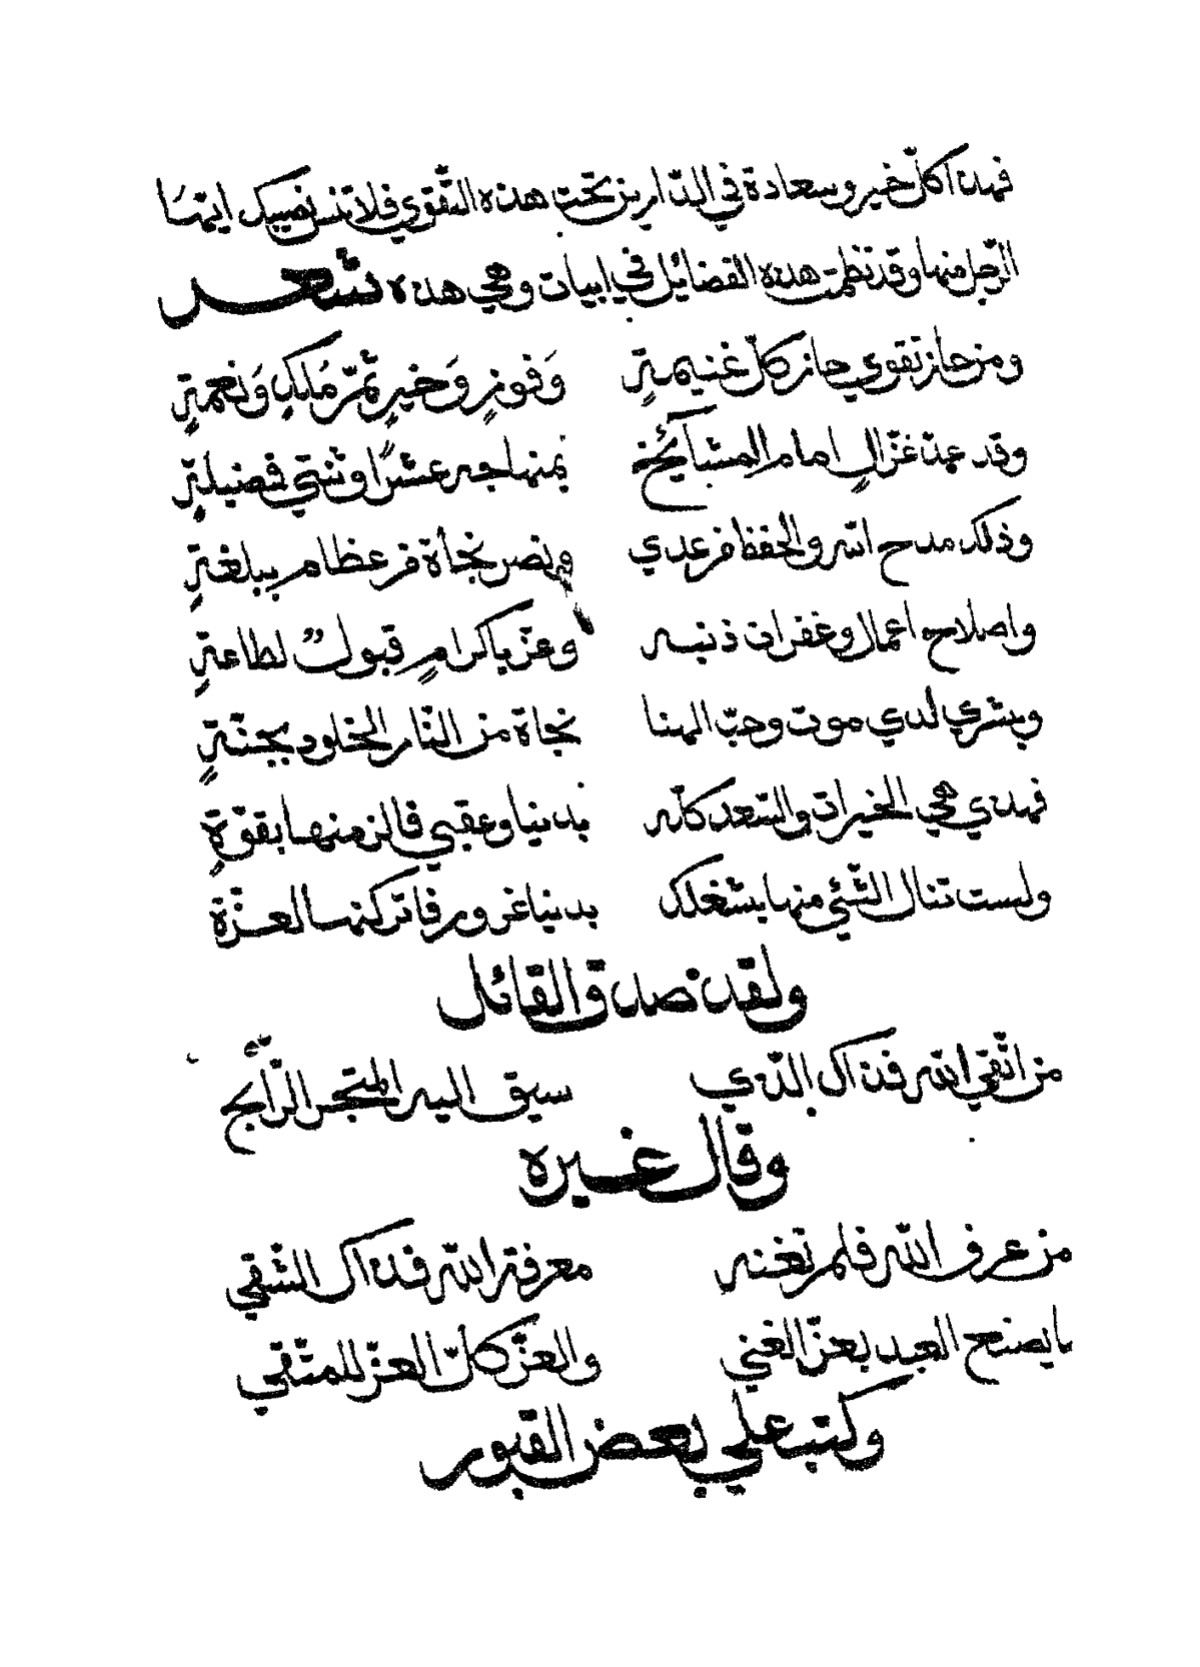 فهذا كلّ خير وسعادة في الدّارين تحت هذه التّقوي فلا تنس نصيبك ايّها
الرّجل منها وقد نظمت هذه الفضائل في ابيات وهي هذه شعر
ومن حاز تقوي حاز كلّ غنيمةٍ وَفوزٍ وَخيرٍ ثمّ مُلكٍ وَنعمةٍ
وقد عدّ غزّالي امام المشائخ بمنهاجه عشرًا وثنتي فضيلةٍ
وذلك مدح الله والحفظ من عدي ونصر نجاة من عظام ببلغةٍ
واصلاح اعمال وغفران ذنبه وعزّ باكرامٍ قبولٌ لطاعةٍ
وبشري لدي موت وحبّ الهنا نجاة من النّار الخلود بجنّةٍ
فهذي هي الخيرات والسّعد كلّه بدنيا وعقبي فالزمنها بقوّةٍ
ولست تنال الشّئي منها بشغلك بدنيا غرور فاتركنها لعزّة
ولقد صدق القائل
من اتّقي الله فذاك الّذي سيق اليه المتجر الرّابح
وقال غيره
من عرف الله فلم تغنه معرفة الله فذاك الشّقي
ما يصنع العبد بعزّ الغني والعزّ كلّ العزّ للمتّقي
وكتب علي بعض القبور